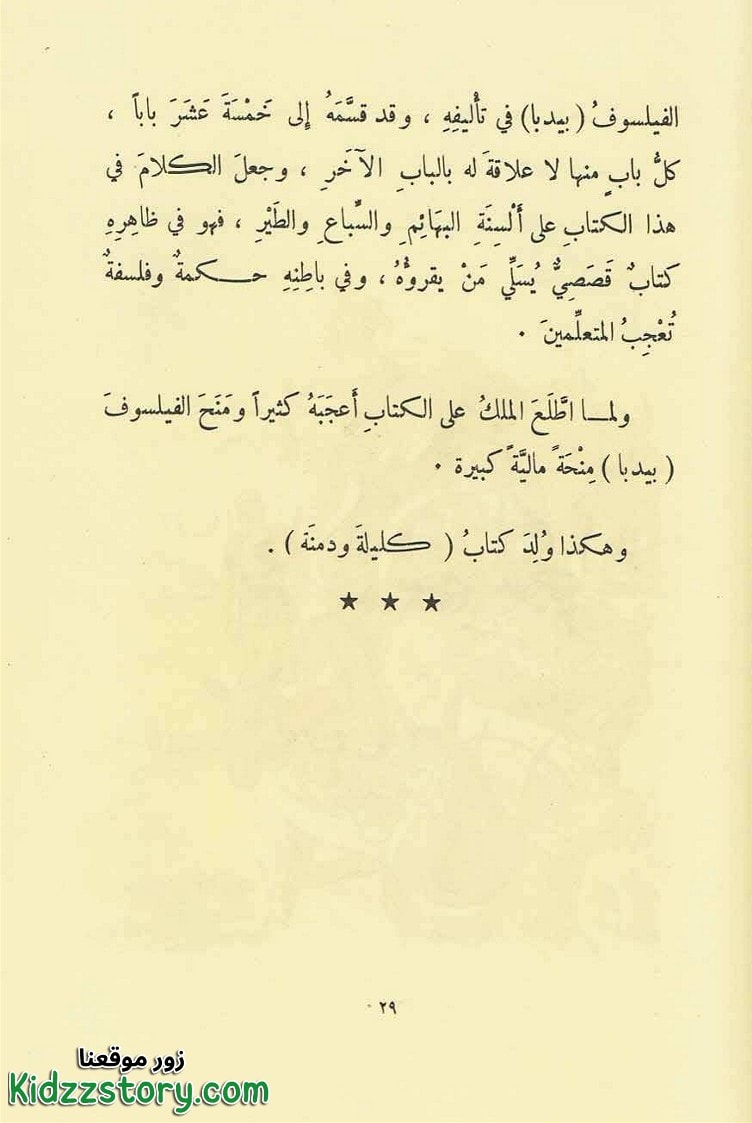 الفيلسوفُ ( بيدبا) في تأْليفِهِ ، وقد قسَّمَهُ إلى خَمْسَةَ عَشَرَ باباً ،
كلُّ بابٍ منها لا علاقةَ له بالبابِ الآخَرِ ، وجعلَ الكلامَ في
هذا الكتابِ على أَلْسِنَةِ البهائِمِ والسِّباعِ والطَيْرِ ، فهو في ظاهِرِهِ
كتابٌ قَصَصِيٌّ يُسَلِّي مَنْ يقروُّهُ ، وفي باطِنِهِ حكمةٌ وفلسفةٌ
تُعْجِبُ المتعلِّمينَ .
ولما اطَّلَعَ الملكُ على الكتابِ أَعجَبَهُ كثيراً ومَنَحَ الفيلسوفَ
( بيدبا ) مِنْحَةً ماليَّةً كبيرة .
وهكذا وُلِدَ كتابُ ( كليلةَ ودمنَة ) .
★ ★ ★
٢٩
زور موقعنا
Kidzzstory.com